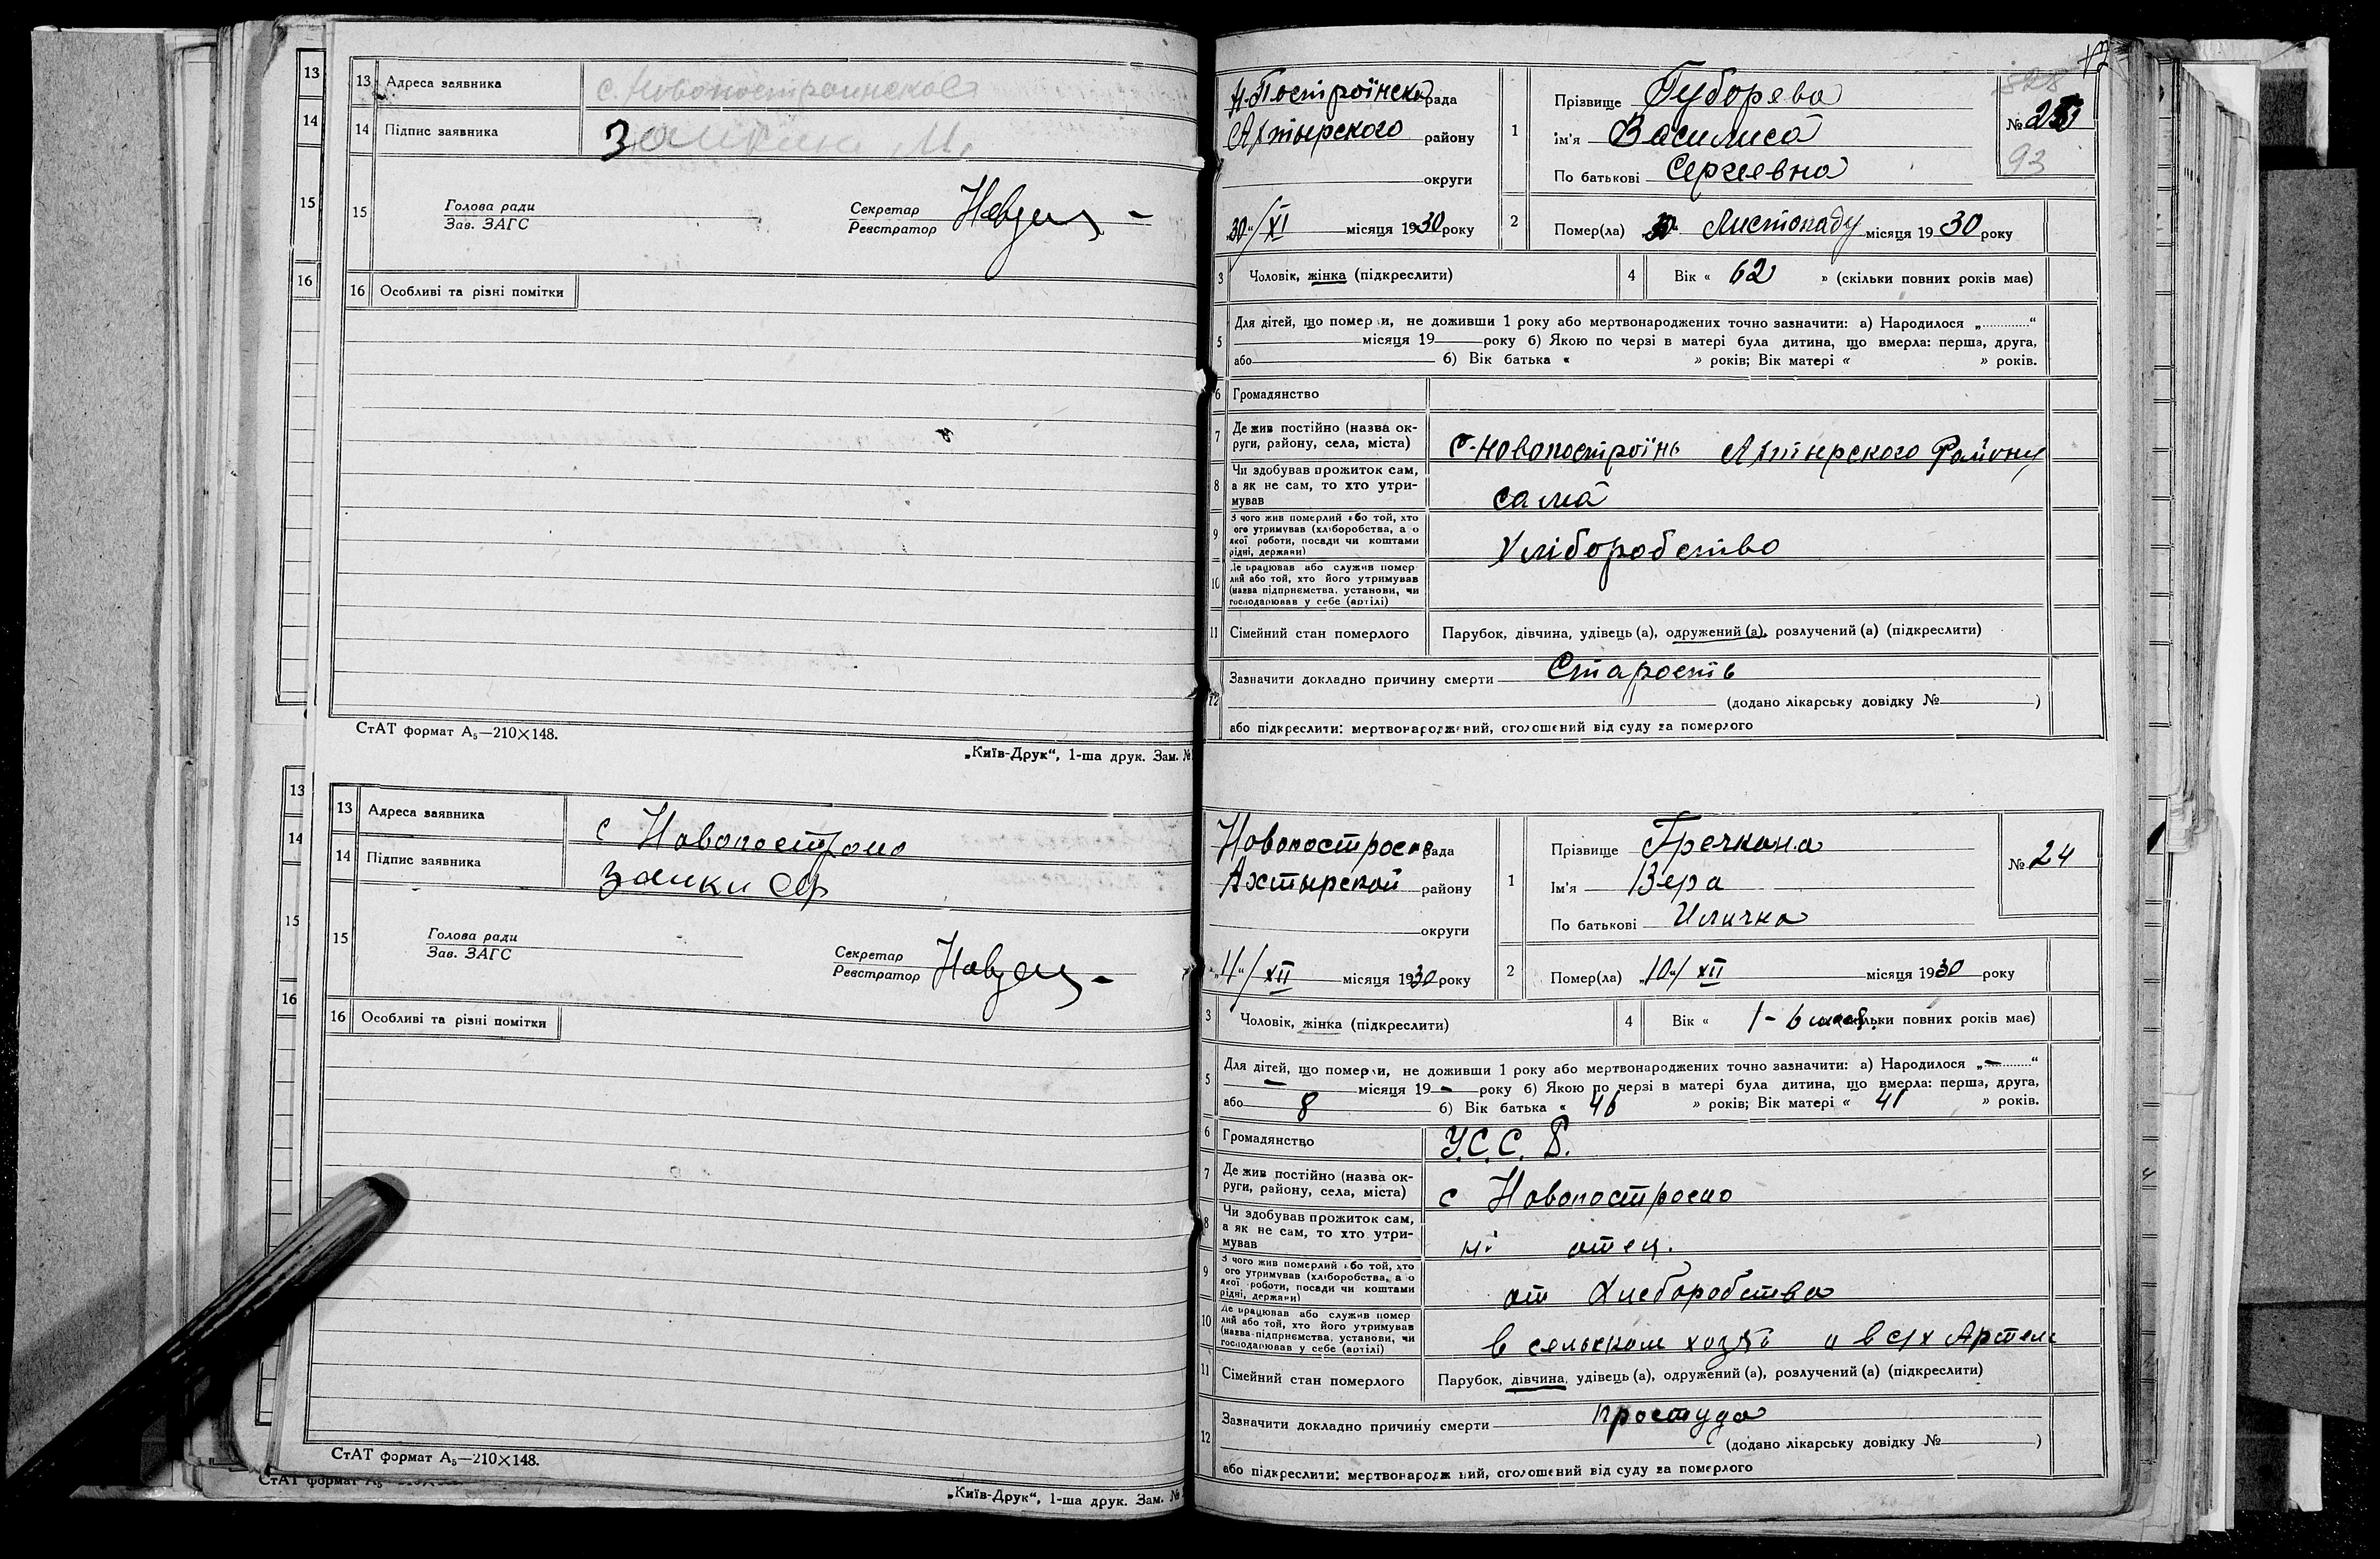 13
14
15
16
13 Адреса заявника с. Новопостроинской
14 Підпис заявника Заикина М.
15 Голова ради
Зав. ЗАГС
Секретар
Реєстратор
16 Особливі та різні помітки
СтАТ формат А₅—210×148.
„Київ-Друк“, 1-ша друк. Зам. №
13
14
15
16
13 Адреса заявника с Новопостроно
14 Підпис заявника Заики
15 Голова ради
Зав. ЗАГС
Секретар
Реєстратор
16 Особливі та різні помітки
СтАТ формат А₅—210×148.
СтАТ формат А₅
„Київ-Друк“, 1-ша друк. Зам. №
17
328
Н.-Построїнско рада
Ахтырского району
округи
„30“/XI місяця 1930 року
1 Прізвище Губорева
Ім'я Василиса
По батькові Сергеевна
№ 23
93
2 Помер(ла) 30 Листопаду місяця 1930 року
3 Чоловік, жінка (підкреслити)
4 Вік « 62 » (скільки повних років має)
5 Для дітей, що померли, не доживши 1 року або мертвонароджених точно зазначити: а) Народилося „.............“
місяця 19 року б) Якою по черзі в матері була дитина, що вмерла: перша, друга,
або б) Вік батька « » років; Вік матері « » років.
6 Громадянство
7 Де жив постійно (назва округи, району, села, міста) с. Новопостроїнь Ахтырского Району
8 Чи здобував прожиток сам, а як не сам, то хто утримував сама
9 З чого жив померлий або той, хто ого утримував (хліборобства, а о якої роботи, посади чи коштами рідні, держави) Хліборобство
10 Де працював або служив помер лий або той, хто його утримував (назва підприємства, установи, чи господарював у себе (артілі)
11 Сімейний стан померлого Парубок, дівчина, удівець (а), одружений (а), розлучений (а) (підкреслити)
12 Зазначити докладно причину смерти Старость
(додано лікарську довідку № )
або підкреслити: мертвонароджений, оголошений від суду за померлого
Новопострое рада
Ахтырской району
округи
„11“/XII місяця 1930 року
1 Прізвище Гречкина
Ім'я Вера
По батькові Илична
№ 24
2 Помер(ла) „10“/XII місяця 1930 року
3 Чоловік, жінка (підкреслити)
4 Вік « 1 - 6 (скільки повних років має)
5 Для дітей, що померли, не доживши 1 року або мертвонароджених точно зазначити: а) Народилося „—..........“
— місяця 19 — року б) Якою по черзі в матері була дитина, що вмерла: перша, друга,
або 8 б) Вік батька « 46 » років; Вік матері « 41 » років.
6 Громадянство У.С.С.Р.
7 Де жив постійно (назва округи, району, села, міста) с Новопостроено
8 Чи здобував прожиток сам, а як не сам, то хто утримував ні отец.
9 З чого жив померлий або той, хто ого утримував (хліборобства, а о якої роботи, посади чи коштами рідні, держави) от Хлеборобства
10 Де працював або служив помер лий або той, хто його утримував (назва підприємства, установи, чи господарював у себе (артілі) в сельском в с/х Артели
11 Сімейний стан померлого Парубок, дівчина, удівець (а), одружений (а), розлучений (а) (підкреслити)
12 Зазначити докладно причину смерти простуда
(додано лікарську довідку № )
або підкреслити: мертвонароджений, оголошений від суду за померлого